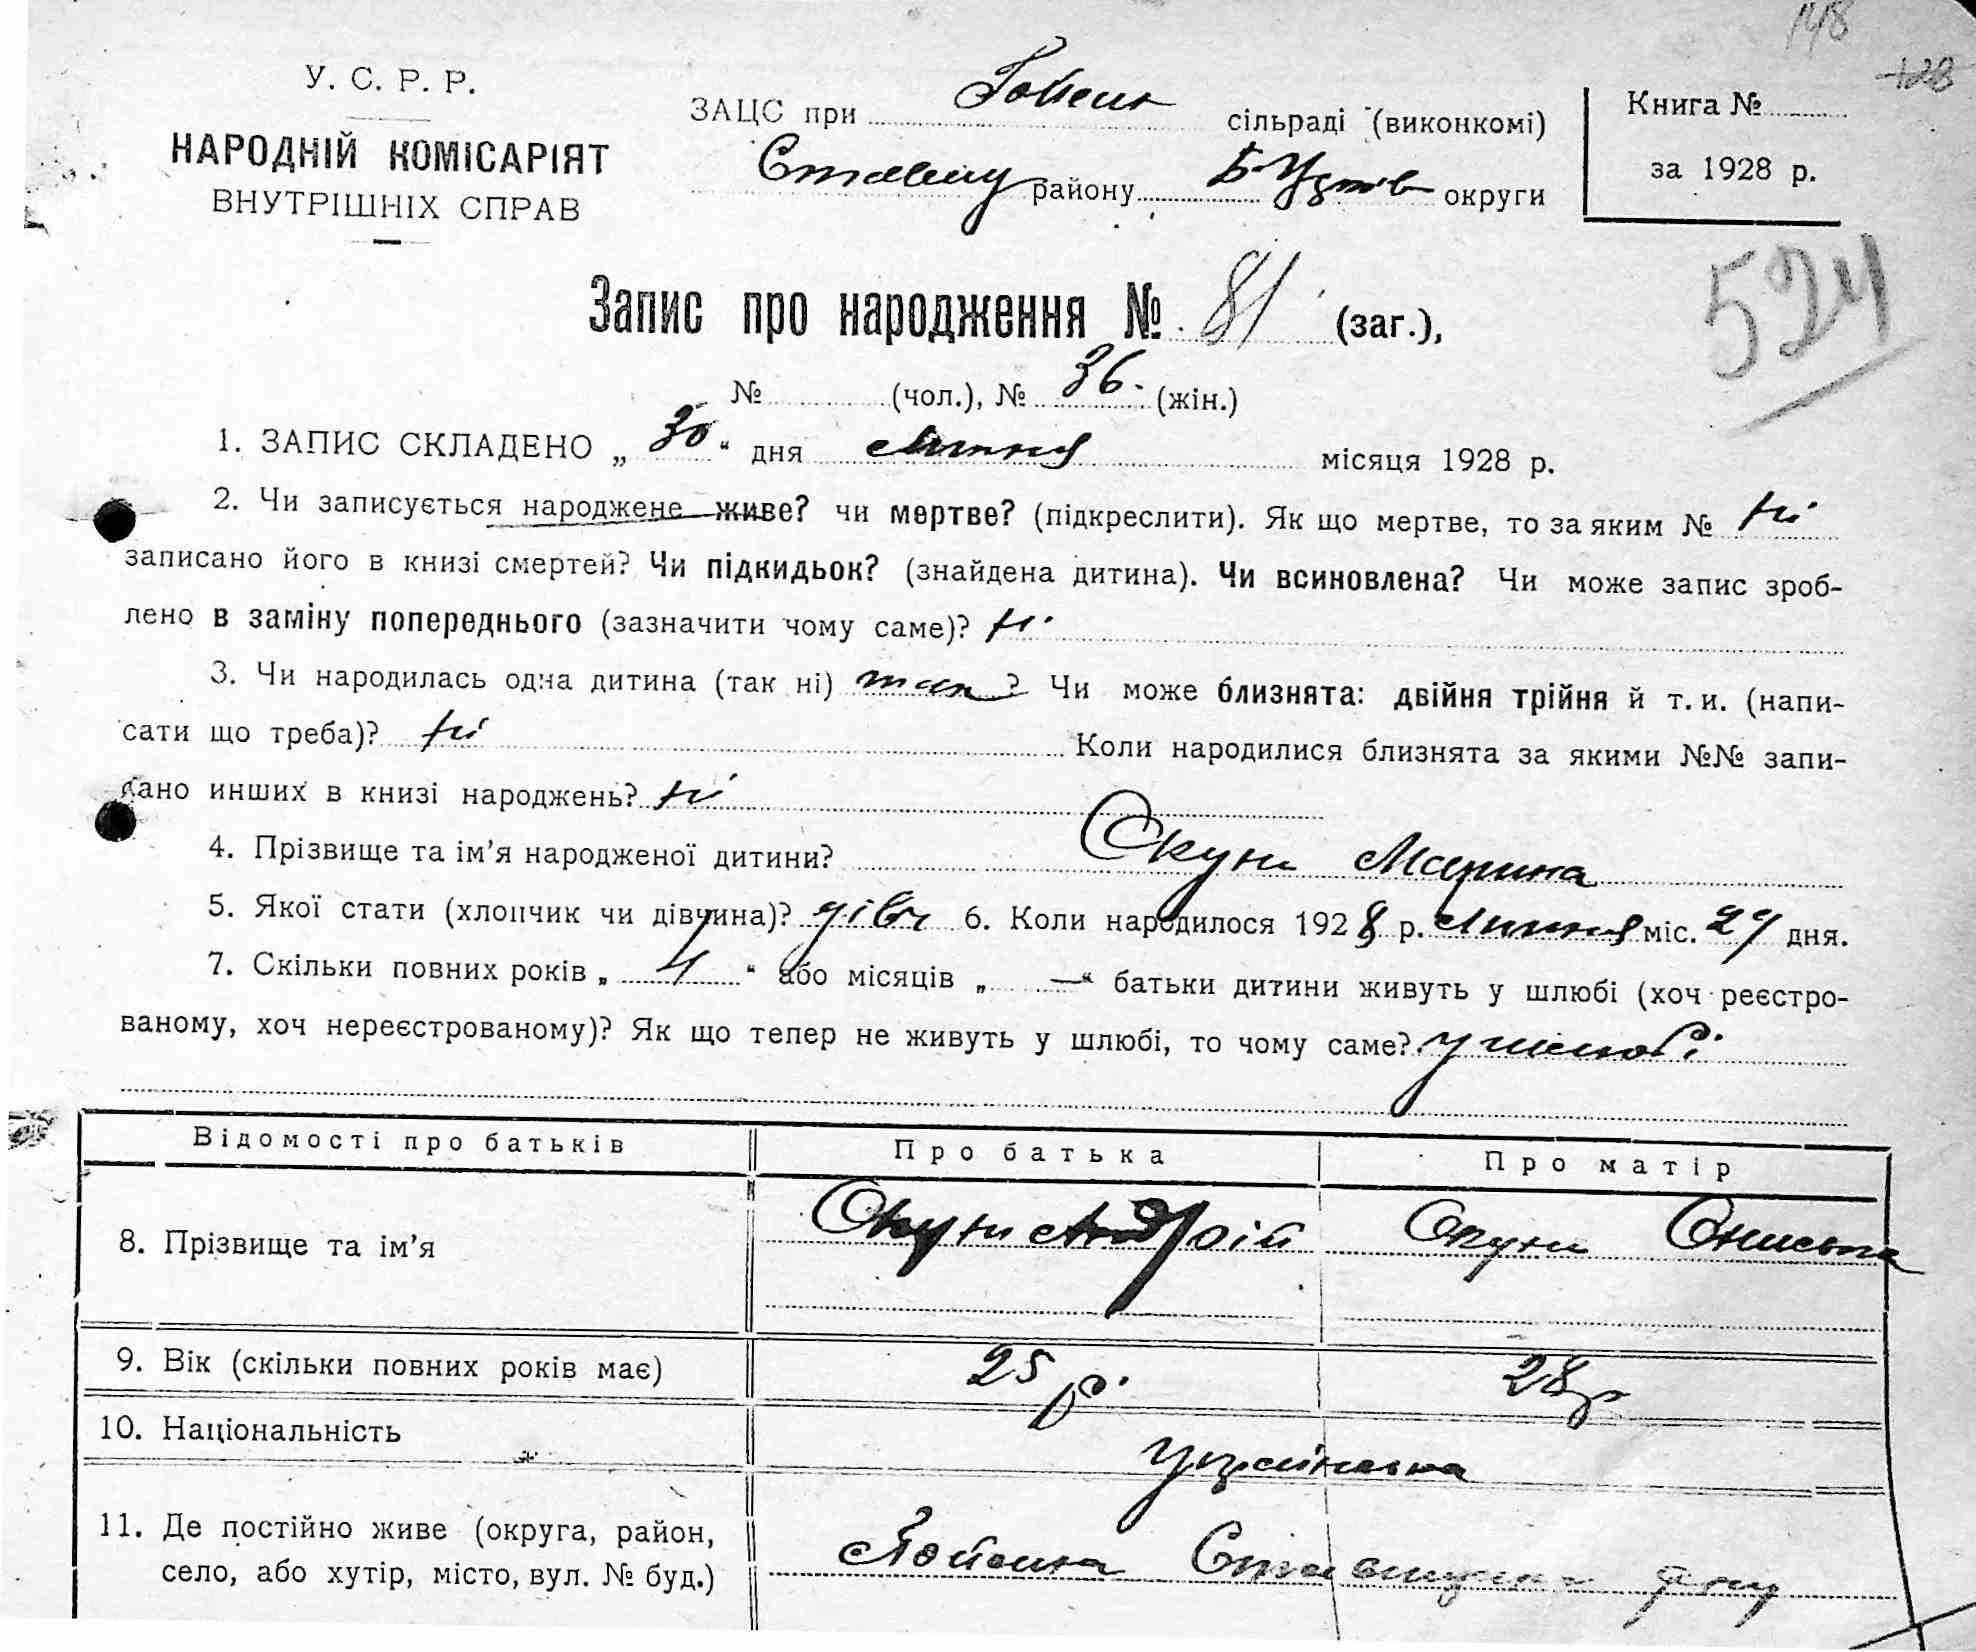 148
128
У. С. Р. Р.
НАРОДНІЙ КОМІСАРІЯТ
ВНУТРІШНІХ СПРАВ
ЗАЦС при сільраді (виконкомі)
району Б-Церків округи
Книга №
за 1928 р.
524
Запис про народження № 81 (заг.),
№ (чол.), № 36 (жін.)
1. ЗАПИС СКЛАДЕНО „30“ дня липня місяця 1928 р.
2. Чи записується народжене живе? чи мертве? (підкреслити). Як що мертве, то за яким № ні
записано його в книзі смертей? Чи підкидьок? (знайдена дитина). Чи всиновлена? Чи може запис зроб-
лено в заміну попереднього (зазначити чому саме)? ні
3. Чи народилась одна дитина (так ні) так ? Чи може близнята: двійня трійня й т. и. (напи-
сати що треба)? ні Коли народилися близнята за якими №№ запи-
сано инших в книзі народжень? ні
4. Прізвище та ім’я народженої дитини? Окунь Марина
5. Якої стати (хлопчик чи дівчина)? дівч 6. Коли народилося 1928 р. липня міс. 27 дня.
7. Скільки повних років „ 1 “ або місяців „ —“ батьки дитини живуть у шлюбі (хоч реєстро-
ваному, хоч нереєстрованому)? Як що тепер не живуть у шлюбі, то чому саме? у шлюбі
Відомості про батьків Про батька Про матір
8. Прізвище та ім’я Окунь Андрій Окунь Ониська
9. Вік (скільки повних років має) 25 р. 28 р
10. Національність Українська
11. Де постійно живе (округа, район,
село, або хутір, місто, вул. № буд.) р-ну